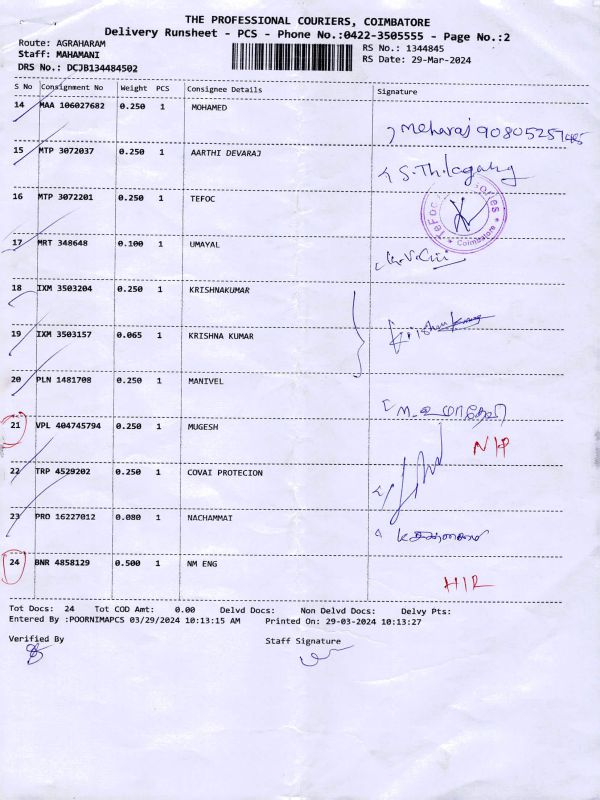 THE PROFESSIONAL COURIERS, COIMBATORE
Delivery Runsheet - PCS - Phone No.:0422-3505555 - Page No.:2
Route: AGRAHARAM
RS No.: 1344845
Staff: MAHAMANI
RS Date: 29-Mar-2024
DRS No.: DCJB134484502
S No Consignment No Weight PCS Consignee Details Signature
14 MAA 106027682 0.250 1 MOHAMED
Meharaj
15 MTP 3072037 0.250 1 AARTHI DEVARAJ
16 MTP 3072201 0.250 1 TEFOC
TeFoc
Coimbatore
17 MRT 348648 0.100 1 UMAYAL
18 IXM 3503204 0.250 1 KRISHNAKUMAR
19 IXM 3503157 0.065 1 KRISHNA KUMAR
20 PLN 1481708 0.250 1 MANIVEL
21 VPL 404745794 0.250 1 MUGESH
N/P
22 TRP 4529202 0.250 1 COVAI PROTECION
23 PRO 16227012 0.080 1 NACHAMMAI
24 BNR 4858129 0.500 1 NM ENG
Tot Docs: 24 Tot COD Amt: 0.00 Delvd Docs: Non Delvd Docs: Delvy Pts:
Entered By :POORNIMAPCS 03/29/2024 10:13:15 AM Printed On: 29-03-2024 10:13:27
Verified By Staff Signature